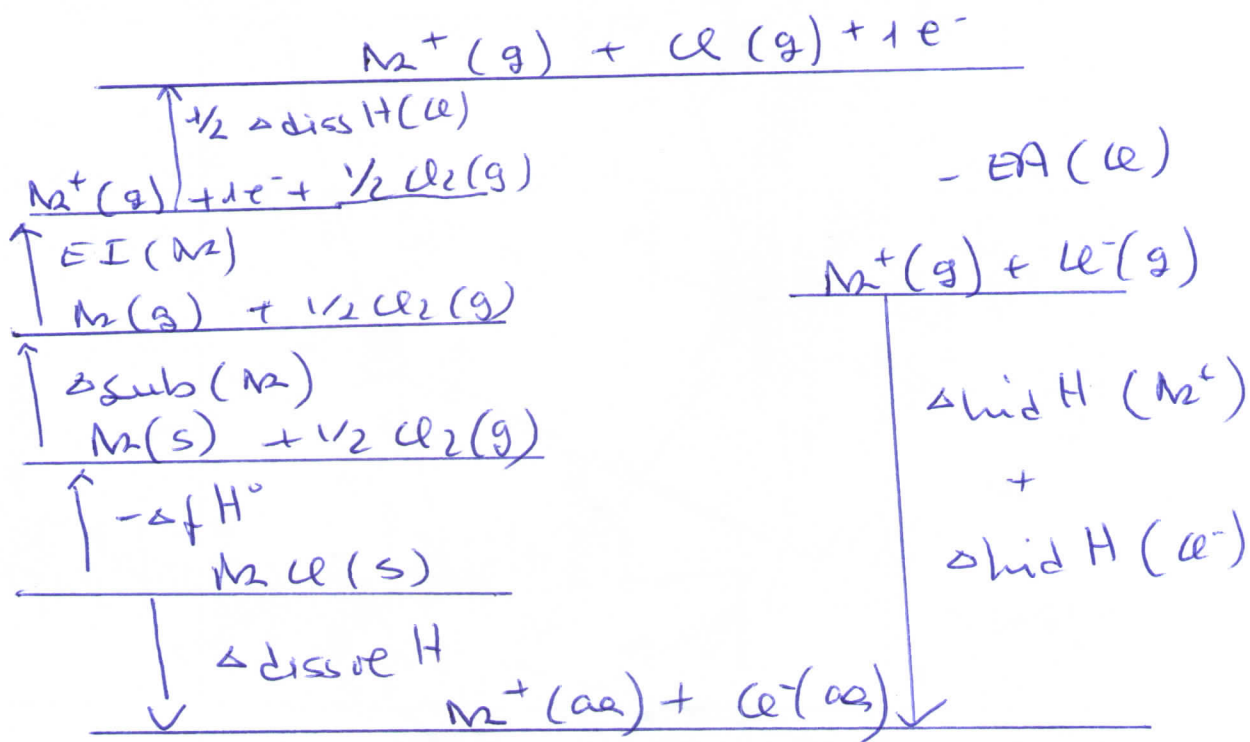 Na⁺(g) + Cl(g) + 1e⁻
1/2 Δdiss H(Cl)
- EA(Cl)
Na⁺(g) + 1e⁻ + 1/2 Cl₂(g)
EI(Na)
Na⁺(g) + Cl⁻(g)
Na(g) + 1/2 Cl₂(g)
Δsub(Na)
Δhid H (Na⁺)
Na(s) + 1/2 Cl₂(g)
+
-Δf H°
Δhid H (Cl⁻)
NaCl(s)
Δdissol H
Na⁺(aq) + Cl⁻(aq)